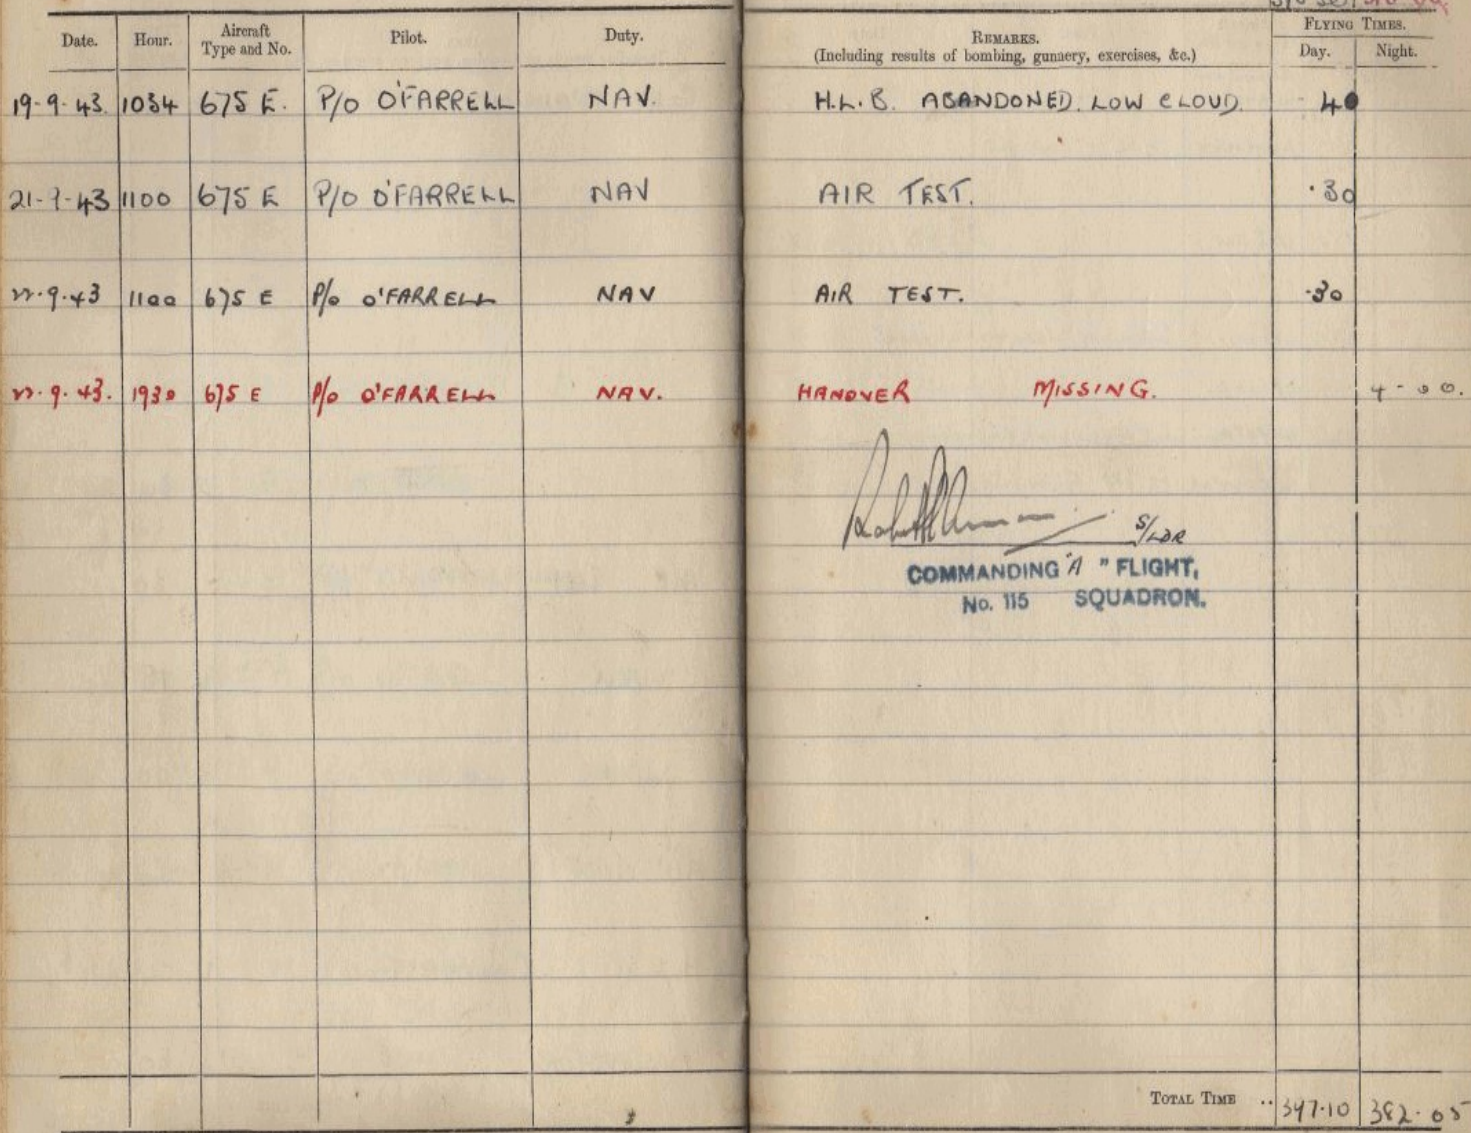 FLYING TIMES.
Date. Hour. Aircraft Type and No. Pilot. Duty. REMARKS. (Including results of bombing, gunnery, exercises, &c.) Day. Night.
19-9-43. 1034 675 E. P/O O'FARRELL NAV. H.L.B. ABANDONED. LOW CLOUD. 40
21-9-43 1100 675 E P/O O'FARRELL NAV AIR TEST. ·30
22·9·43 1100 675 E P/O O'FARRELL NAV AIR TEST. ·30
22·9·43. 1930 675 E P/O O'FARRELL NAV. HANOVER MISSING. 4-00.
S/LDR
COMMANDING "A" FLIGHT,
No. 115 SQUADRON.
TOTAL TIME .. 347·10 382·05